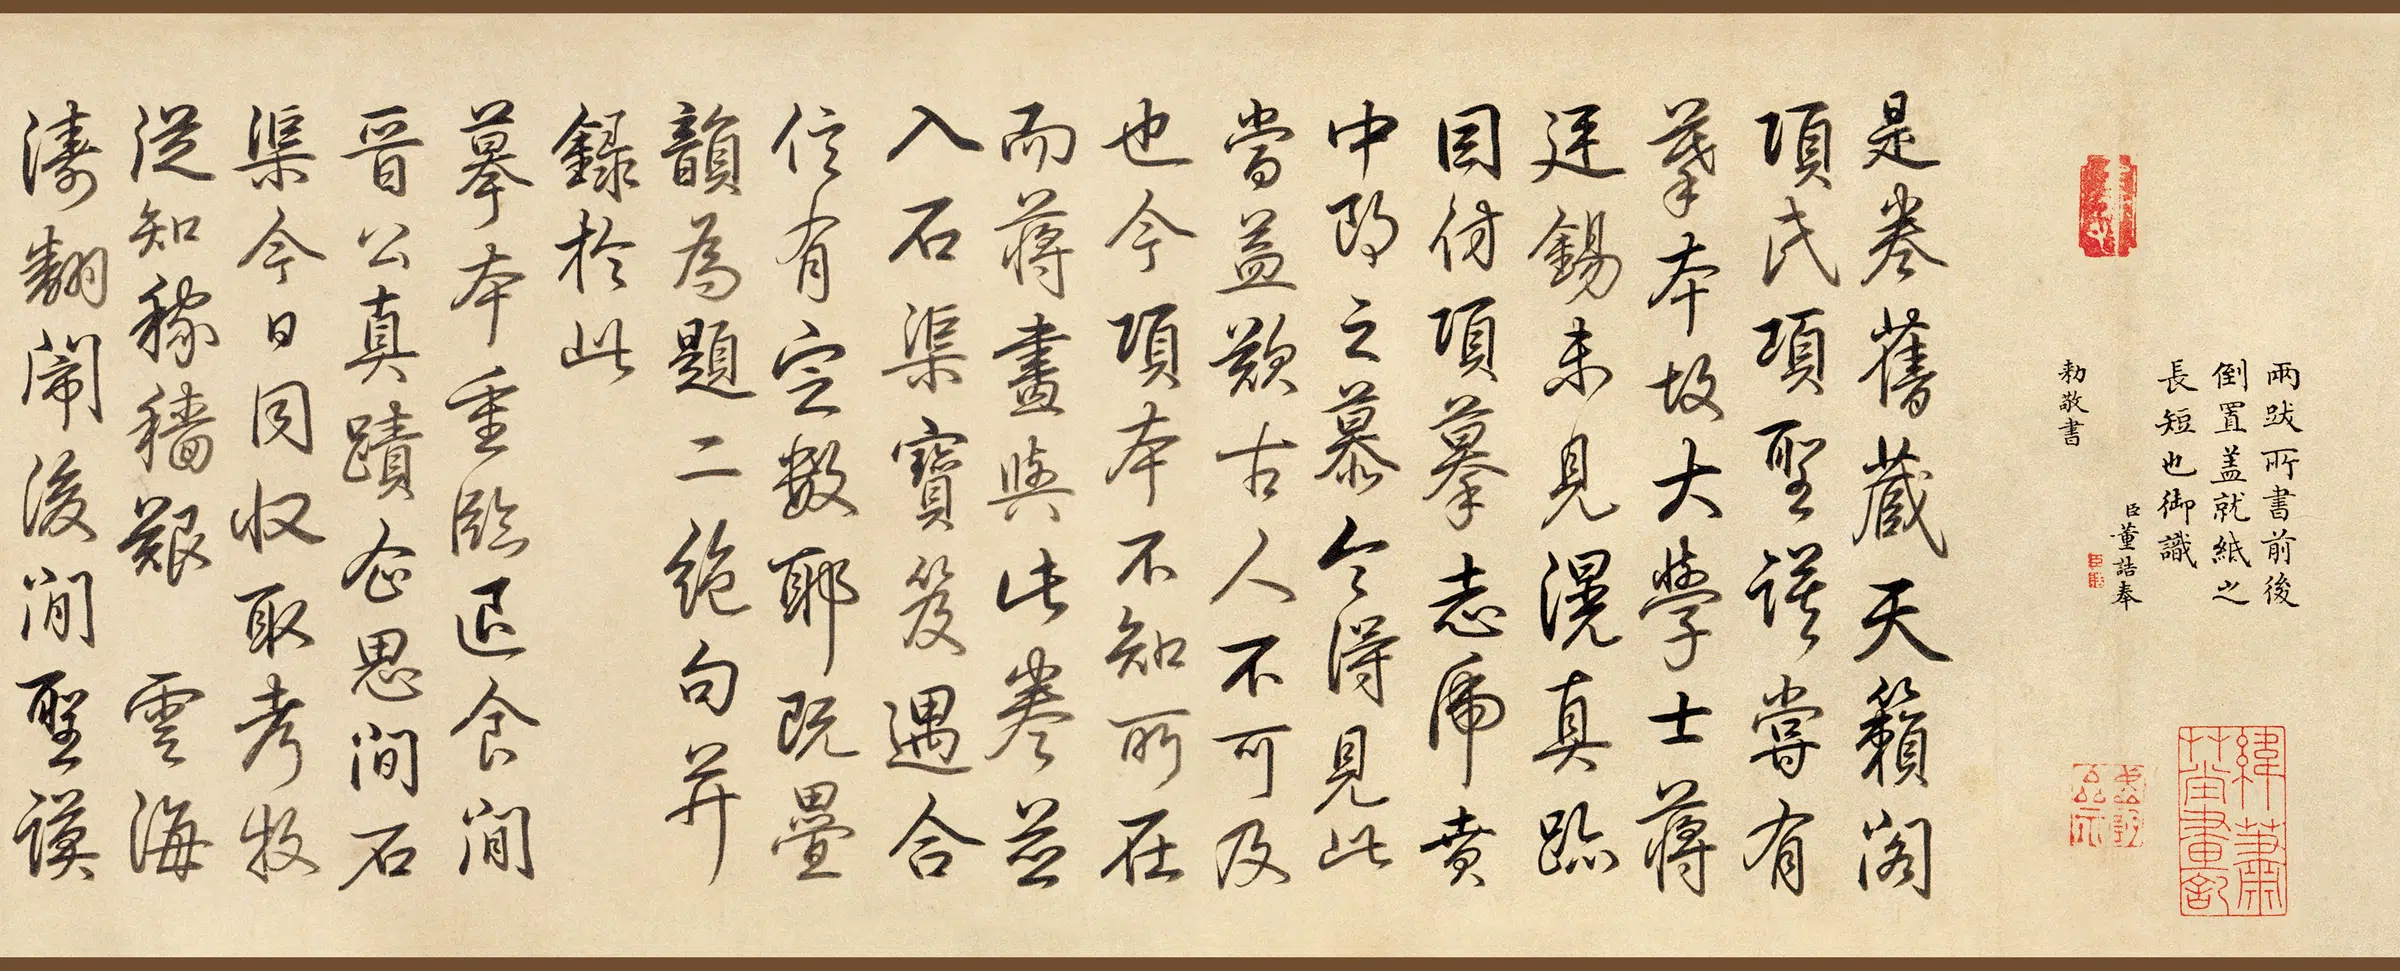 兩跋所書前後
倒置蓋就紙之
長短也御識
臣董誥奉
勅敬書
是卷舊藏天籟閣
項氏項聖謨嘗有
摹本故大學士蔣
廷錫未見滉真跡
因仿項摹志虎賁
中郎之慕今得見此
嘗益歎古人不可及
也今項本不知所在
而蔣畫與此卷並
入石渠寶笈遇合
信有定數耶既疊
韻為題二絶句并
録於此
摹本重臨退食間
晋公真蹟企思間石
渠今日同收取考牧
從知稼穡艱 雲海
濤翻鬧後間聖謨